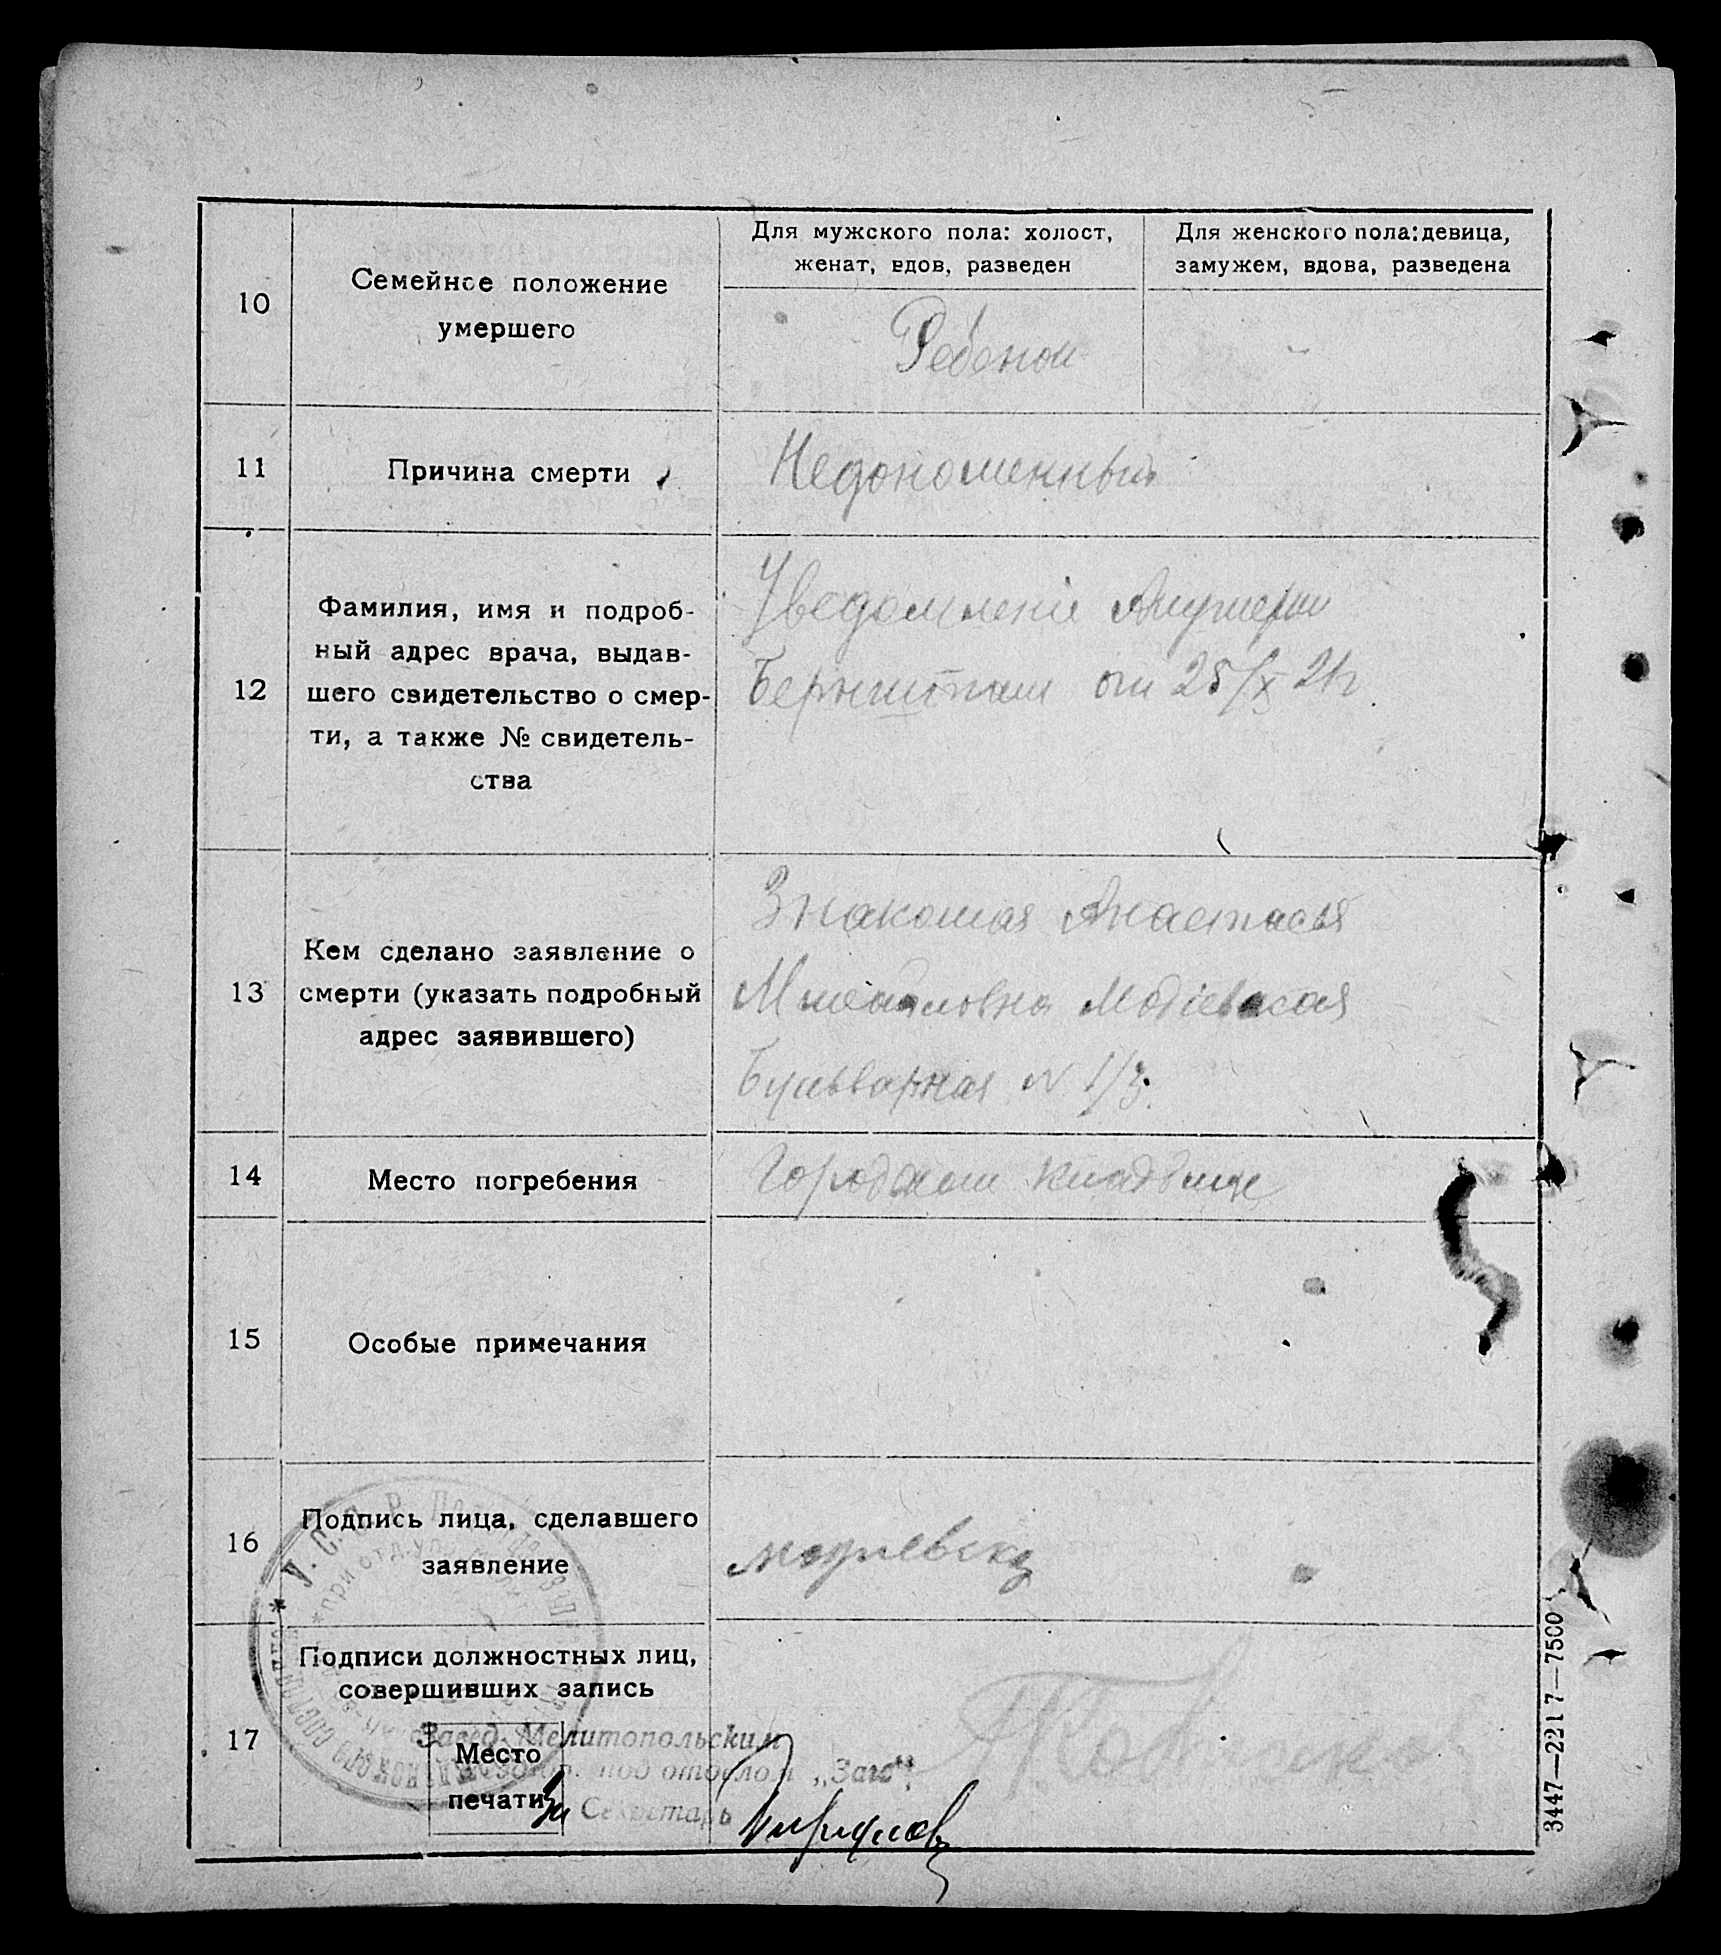 Для мужского пола: холост,
женат, вдов, разведен
Для женского пола: девица,
замужем, вдова, разведена
10
Семейное положение
умершего
Ребенок
11
Причина смерти
Недоношенный
12
Фамилия, имя и подроб-
ный адрес врача, выдав-
шего свидетельство о смер-
ти, а также № свидетель-
ства
Уведомление Акушерки
Бернштам от 25/X 21 г.
13
Кем сделано заявление о
смерти (указать подробный
адрес заявившего)
Знакомая Анастасья
Михайловна
Бульварная N 1/3.
14
Место погребения
Городском кладбище
15
Особые примечания
16
Подпись лица, сделавшего
заявление
17
Подписи должностных лиц,
совершивших запись
Место
печати
У. С. С. Р.
Завед. Мелитопольским
под отделом „Загс“
За Секретарь
3447—2217—7500